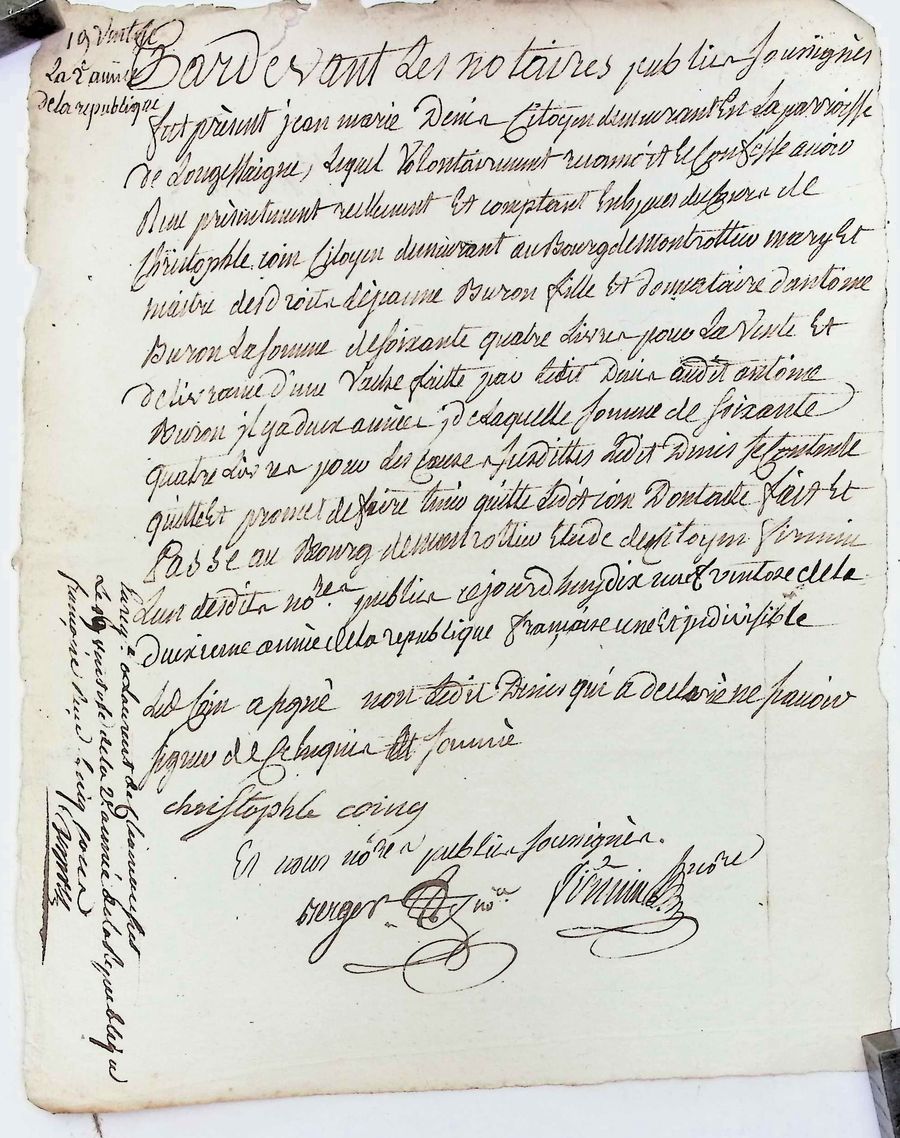 19 Ventose
La 2 année
de la republique
Pardevant Les notaires publics soussignés
fut présent jean marie Denis Citoyen demeurant En La parroisse
de Longessaigne, Lequel Volontairement reconnoit et Confesse avoir
Reçu présentement réellement Et comptant En Espèces du Cours de
Christophle coin Citoyen demeurant au Bourg de montrottier mary Et
maitre des droits de jeanne Buron fille Et donnataire d'antoine
Buron La somme de soixante quatre Livres pour La Vente Et
délivrance d'une Vache faitte par ledit Denis audit antoine
Buron jl y a deux années jde Laquelle somme de soixante
quatre Livres pour Les Causes susdittes Ledit Denis se Contente
quitte Et promet de faire tenir quitte Ledit Coin Dont acte fait Et
Passé au Bourg de montrottier Etude de Citoyen firmin
L'un desdits nores publics cejourd'huy dix neuf ventose de la
deuxieme année de la republique francaise une Et jndivisible
Led Coin a signé non Ledit Denis qui a declaré ne savoir
signer de Ce requis Et sommé
christophle coing
Et nous nores publics soussignés.
verger nore
firmin nore
Enregé a Laurent de Chamousset
Le 19 ventose de la 2e année de la Republique
françoise Reçu